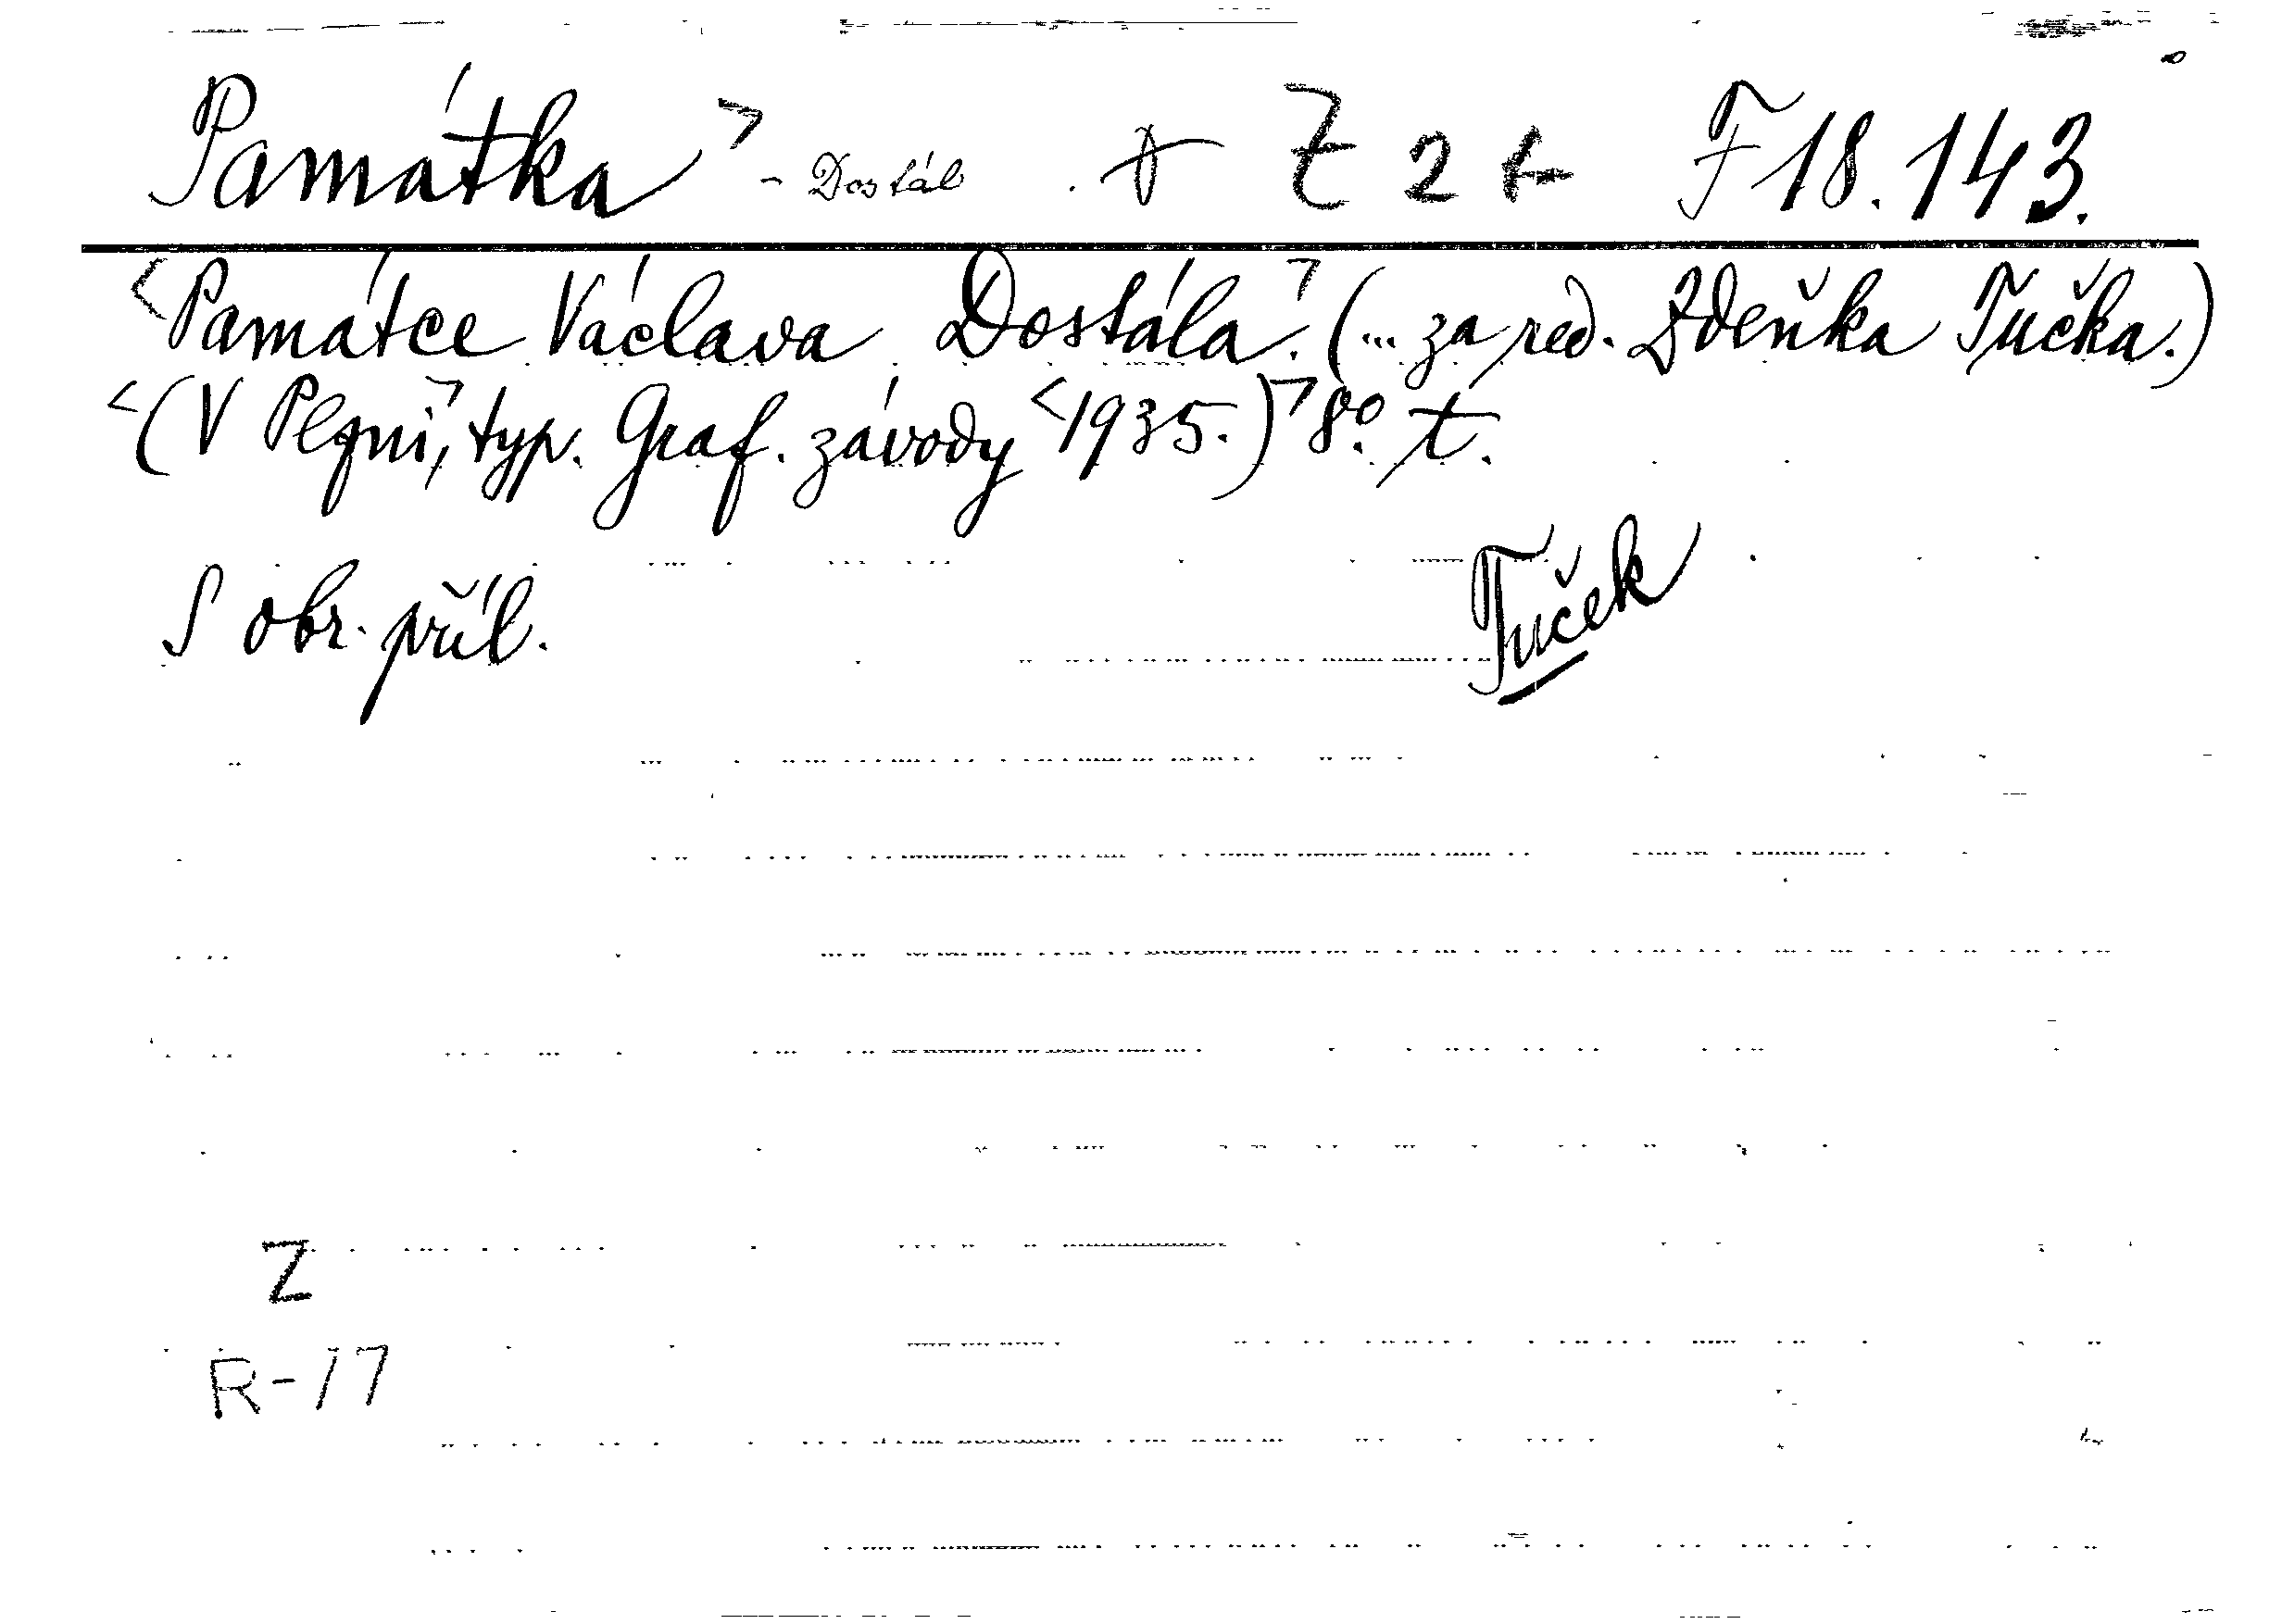 Památka - Dostál Z 2 F 18.143.
Památce Václava Dostála. (... za red. Zdeňka Tučka.)
(V Plzni, typ. Graf. závody 1935.) 8°. t.
S obr. příl. Tuček
Z
R-17